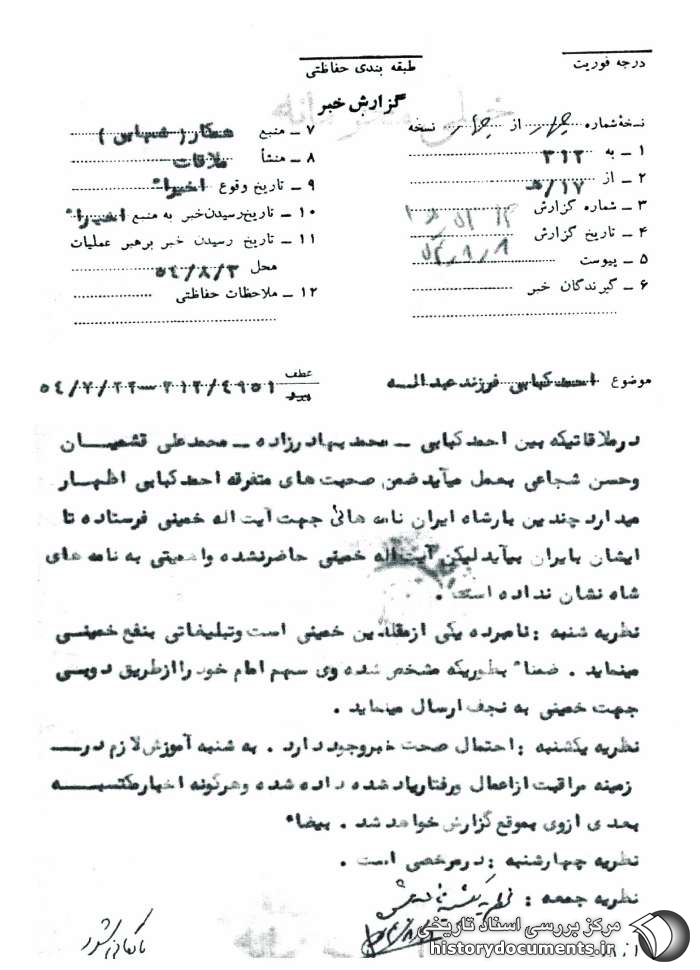 درجه فوریت
طبقه بندی حفاظتی
گزارش خبر
نسخهٔ شماره چهار از چهار نسخه
۱ ــ به ۳۱۲
۲ ــ از ۱۷/هـ
۳ ــ شماره گزارش
۴ ــ تاریخ گزارش ۵۴/۸/۸
۵ ــ پیوست
۶ ــ گیرندگان خبر
۷ ــ منبع همکار (شهباس)
۸ ــ منشأ ملاقات
۹ ــ تاریخ وقوع اخیراً
۱۰ ــ تاریخ رسیدن خبر به منبع اخیراً
۱۱ ــ تاریخ رسیدن خبر برهبر عملیات
محل ۵۴/۸/۳
۱۲ ــ ملاحظات حفاظتی
موضوع احمد کبابی فرزند عبداله
عطف
پیرو ۳۱۲/۴۹۵۱ــ۵۴/۷/۲۲
درملاقاتیکه بین احمد کبابی ــ محمد بهادرزاده ــ محمدعلی قشمیان
وحسن شجاعی بعمل میآید ضمن صحبت های متفرقه احمد کبابی اظهار
میدارد چندین بارشاه ایران نامه هائی جهت آیت اله خمینی فرستاده تا
ایشان بایران بیآید لیکن آیت اله خمینی حاضرنشده واهمیتی به نامه های
شاه نشان نداده است .
نظریه شنبه : نامبرده یکی ازمقلدین خمینی است وتبلیغاتی بنفع خمینی
مینماید . ضمناً بطوریکه مشخص شده وی سهم امام خود را ازطریق دوبی
جهت خمینی به نجف ارسال مینماید .
نظریه یکشنبه : احتمال صحت خبروجود دارد . به شنبه آموزش لازم در
زمینه مراقبت ازاعمال ورفتاریاد شده داده شده وهرگونه اخبارمکتسبه
بعدی ازوی بموقع گزارش خواهد شد . بیضاء
نظریه چهارشنبه : درمرخصی است .
نظریه جمعه : نظریه یکشنبه
بایگانی شود
مرکز بررسی اسناد تاریخی
historydocuments.ir